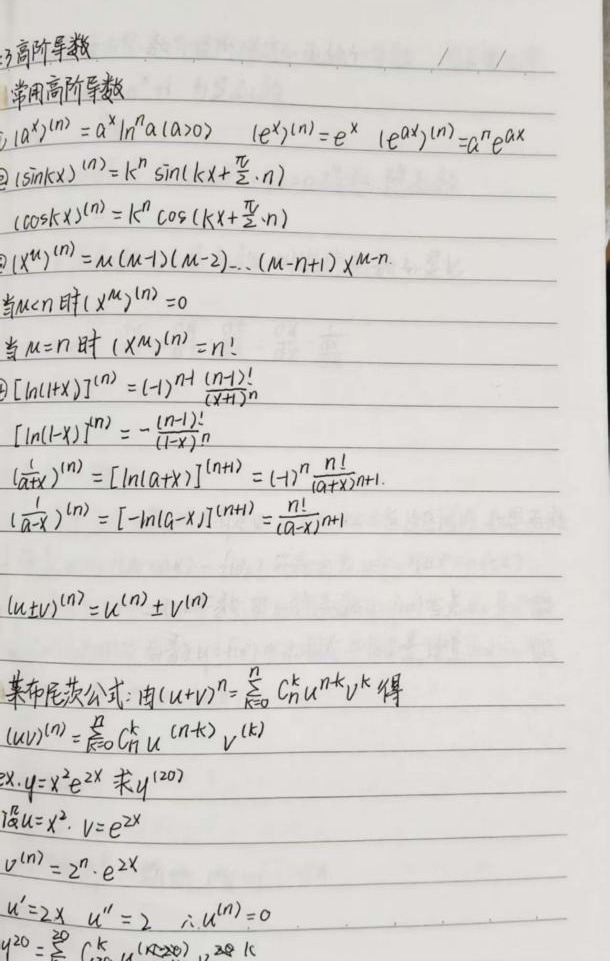 3高阶导数
常用高阶导数
(aˣ)⁽ⁿ⁾ = aˣ lnⁿa (a>0)  (eˣ)⁽ⁿ⁾ = eˣ  (e^{ax})⁽ⁿ⁾ = aⁿe^{ax}
② (sinkx)⁽ⁿ⁾ = kⁿ sin(kx + π/2·n)
(coskx)⁽ⁿ⁾ = kⁿ cos(kx + π/2·n)
(x^μ)⁽ⁿ⁾ = μ(μ-1)(μ-2)...(μ-n+1) x^{μ-n}
当μ<n时 (x^μ)⁽ⁿ⁾ = 0
当μ=n时 (x^μ)⁽ⁿ⁾ = n!
④ [ln(1+x)]⁽ⁿ⁾ = (-1)^{n-1} (n-1)!/(x+1)ⁿ
[ln(1-x)]⁽ⁿ⁾ = -(n-1)!/(1-x)ⁿ
(1/(a+x))⁽ⁿ⁾ = [ln(a+x)]⁽ⁿ⁺¹⁾ = (-1)ⁿ n!/(a+x)^{n+1}.
(1/(a-x))⁽ⁿ⁾ = [-ln(a-x)]⁽ⁿ⁺¹⁾ = n!/(a-x)^{n+1}
(u±v)⁽ⁿ⁾ = u⁽ⁿ⁾ ± v⁽ⁿ⁾
莱布尼茨公式: 由(u+v)ⁿ = Σ_{k=0}^{n} C_n^k u^{n-k} v^k 得
(uv)⁽ⁿ⁾ = Σ_{k=0}^{n} C_n^k u^{(n-k)} v^{(k)}
ex. y=x²e^{2x} 求y⁽²⁰⁾
设u=x². v=e^{2x}
v⁽ⁿ⁾ = 2ⁿ·e^{2x}
u'=2x  u''=2  ∴u⁽ⁿ⁾=0
y²⁰ = Σ^{20}